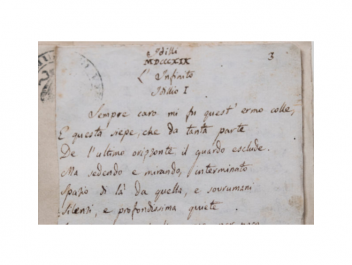 Idilli
MDCCCXIX
3
L' Infinito
Idilio I
Sempre caro mi fu quest' ermo colle,
E questa siepe, che da tanta parte
De l'ultimo orizzonte il guardo esclude.
Ma sedendo e mirando, interminato
Spazio di là da quella, e sovrumani
Silenzi, e profondissima quiete